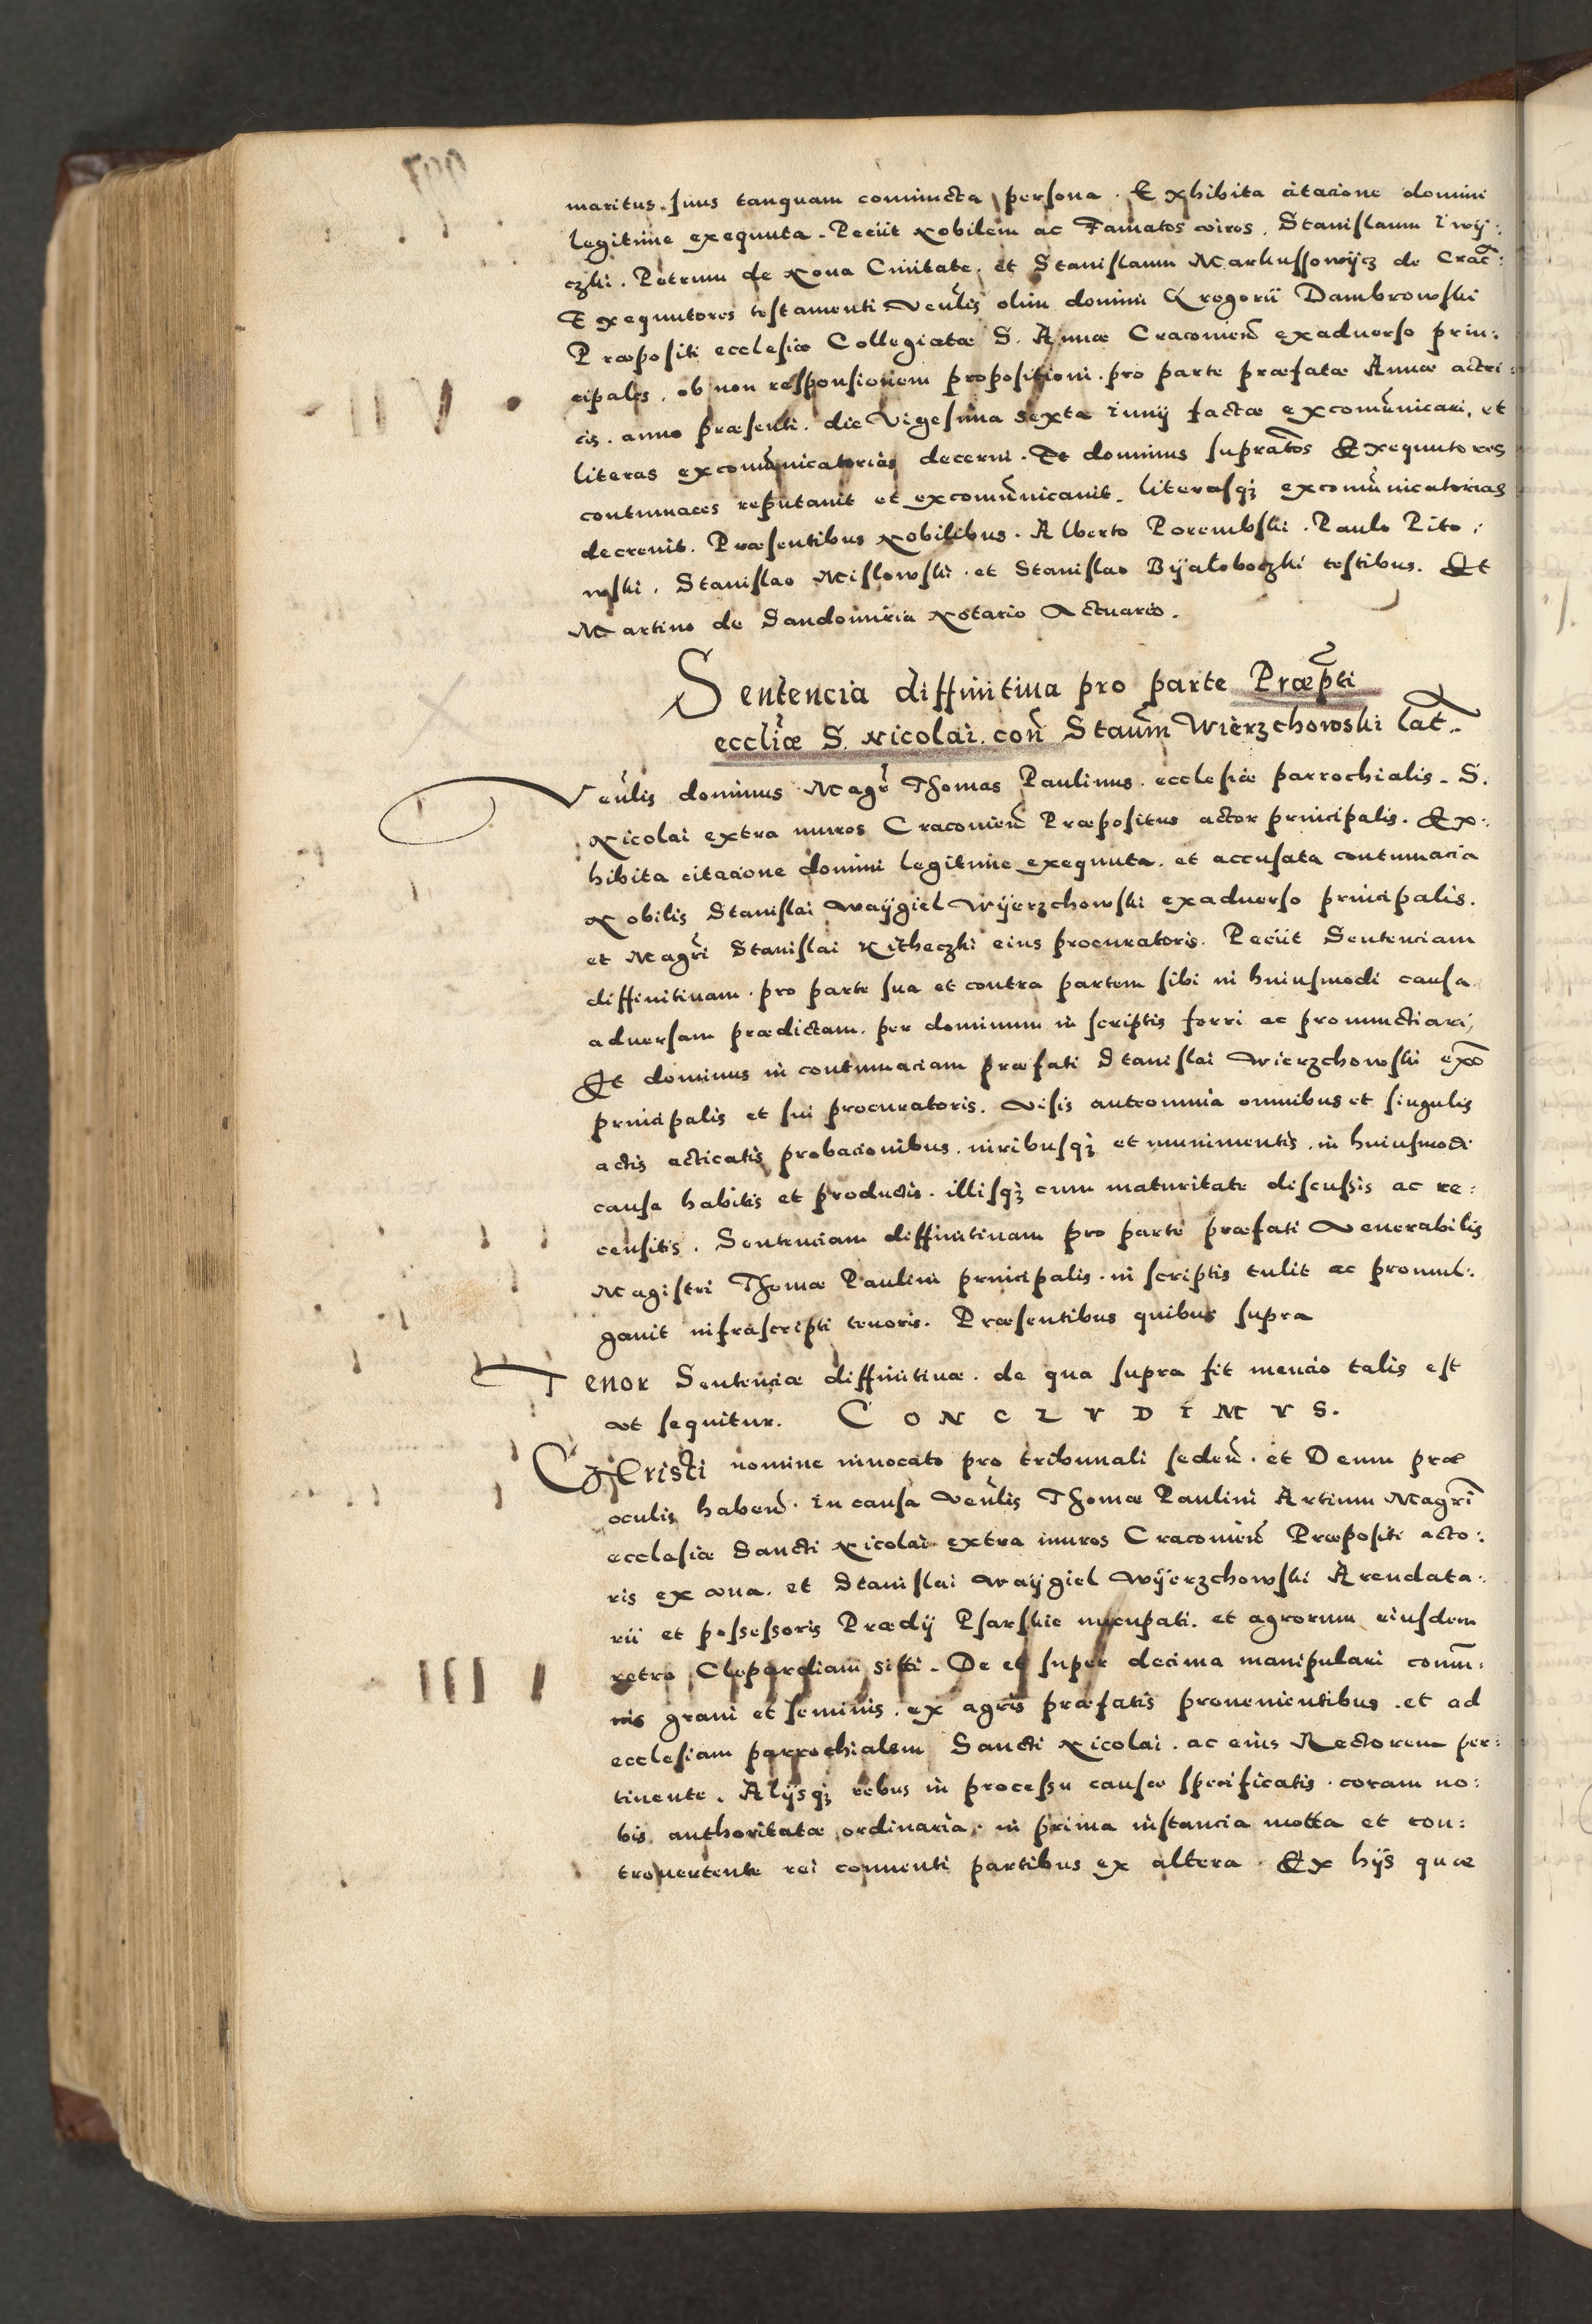 maritus. suus tanquam coniuncta persona. Exhibita citacione domini
legitime exequuta. Peciit Nobilem ac Famatos viros. Stanislaum Iwÿ:
czki. Petrum de Noua Ciuitate. et Stanislaum Markussowÿcz de Crac̃:
Exequutores testamenti Veñlis olim domini Gregorii Dambrowski
Præpositi ecclesiæ Collegiatæ S. Annæ Cracouieñ exaduerso prin:
cipales. ob non responsionem propositioni. pro parte præfatæ Annæ actri:
cis. anno præsenti. die Vigesima sexta Iunij factæ excom̃unicari, et
literas excom̃unicatorias decerni. Et dominus supratos̃ Exequutores
contumaces reputauit et excom̃unicauit. literasqꝫ excom̃unicatorias
decreuit. Præsentibus Nobilibus. Alberto Porembski. Paulo Pito:
wski. Stanislao Mislowski. et Stanislao Bÿaloboczki testibus. Et
Martino de Sandomiria Notario Actuario.
Sentencia diffinitiua pro parte Præpti
eccliæ S. Nicolai. coñ Staum̃ Wierzchowski lat̃.
Veñlis dominus Magr̃ Thomas Paulinus. ecclesiæ parrochialis. S.
Nicolai extra muros Cracouieñ Præpositus actor principalis. Ex:
hibita citacione domini legitime exequuta. et accusata contumacia
Nobilis Stanislai Waÿgiel Wÿerzchowski exaduerso principalis.
et Magr̃i Stanislai Nitheczki eius procuratoris. Peciit Sentenciam
diffinitiuam. pro parte sua et contra partem sibi in huiusmodi causa
aduersam prædictam. per dominum in scriptis ferri ac pronunctiari,
Et dominus in contumaciam præfati Stanislai Wierzchowski exõ
principalis et sui procuratoris. Visis anteomnia omnibus et singulis
actis acticatis probacionibus. iuribusqꝫ et munimentis. in huiusmodi
causa habitis et productis. illisqꝫ cum maturitate discussis ac re:
censitis. Sentenciam diffinitiuam pro parte præfati Venerabilis
Magistri Thomæ Paulini principalis. in scriptis tulit ac promul:
gauit infrascripti tenoris. Præsentibus quibus supra
Tenor Sentenciæ diffinitiuæ. de qua supra fit mencio talis est
vt sequitur. CONCLVDIMVS.
Christi nomine inuocato pro tribunali sedeñ. et Deum præ
oculis habeñ. In causa Veñlis Thomæ Paulini Artium Magr̃i
ecclesiæ Sancti Nicolai extra muros Cracouieñ Præpositi acto:
ris ex vna. et Stanislai Waÿgiel Wÿerzchowski Arendata:
rii et possessoris Prædij Psarskie nũcupati. et agrorum eiusdem
retro Clepardiam siti. De et super decima manipulari com̃u:
nis grani et seminis. ex agris præfatis prouenientibus. et ad
ecclesiam parrochialem Sancti Nicolai. ac eius Rectorem per:
tinente. Alijsqꝫ rebus in processu causæ specificatis. coram no:
bis authoritatæ ordinaria. in prima instancia motta et con:
trouertente rei conuenti partibus ex altera. Ex hijs quæ